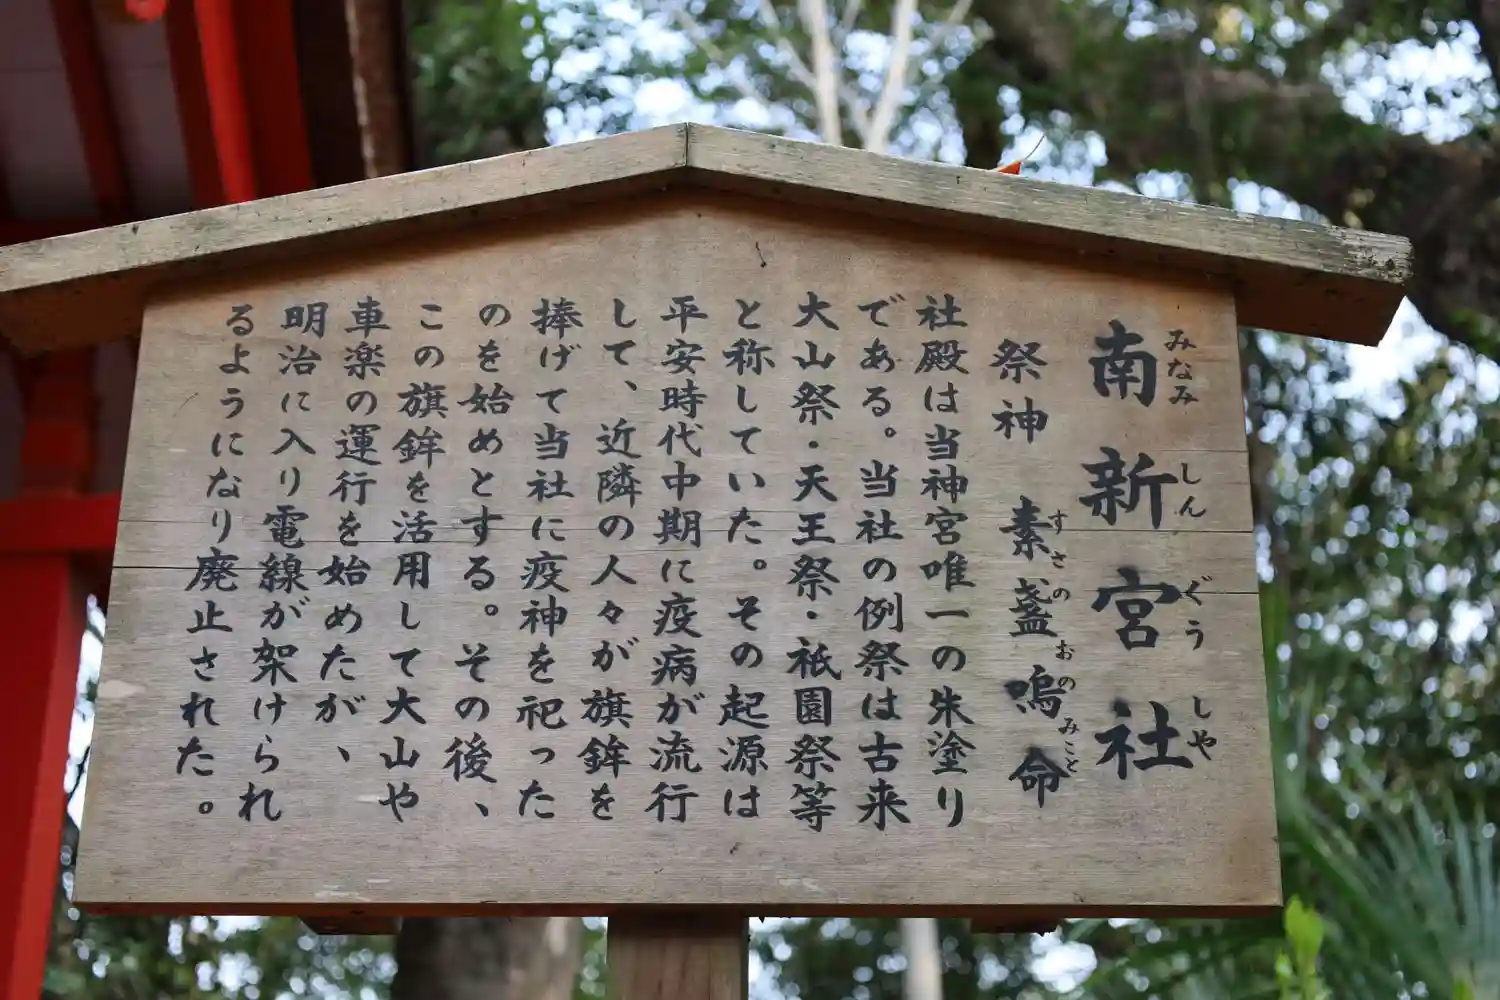 南新宮社
みなみ しん ぐう しや
祭神 素盞嗚命
すさのおのみこと
社殿は当神宮唯一の朱塗り
である。当社の例祭は古来
大山祭・天王祭・祇園祭等
と称していた。その起源は
平安時代中期に疫病が流行
して、近隣の人々が旗鉾を
捧げて当社に疫神を祀った
のを始めとする。その後、
この旗鉾を活用して大山や
車楽の運行を始めたが、
明治に入り電線が架けられ
るようになり廃止された。